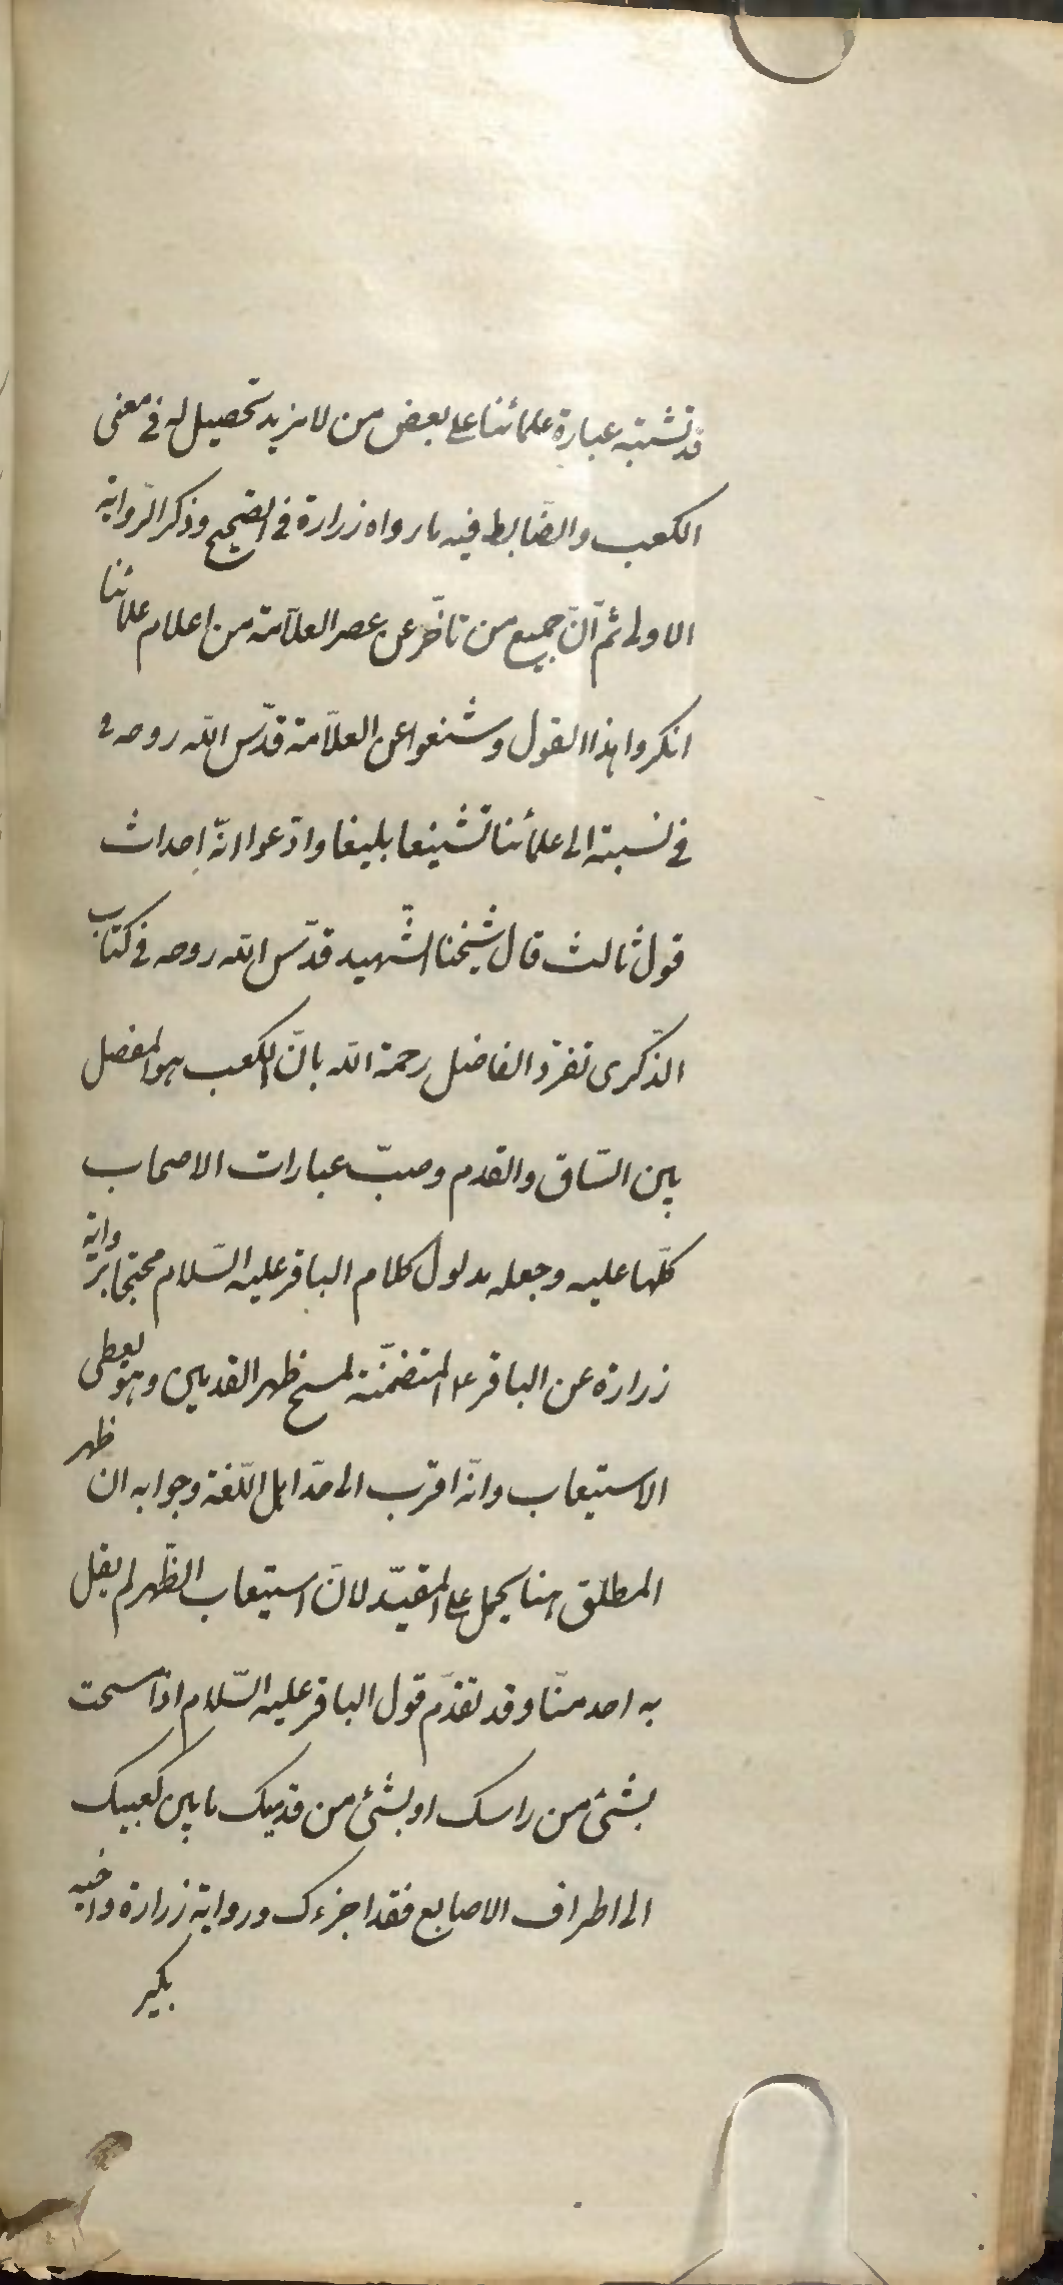 قد تشتبه عبارة علمائنا على بعض من لا مزيد تحصيل له في معنى
الكعب والضّابط فيه ما رواه زرارة في الصّحيح وذكر الرّواية
الاولى ثمّ انّ جميع من تاخّر عن عصر العلّامة من اعلام علمائنا
انكروا هذا القول وشنعوا عن العلّامة قدّس اللّه روحه و
في نسبته الى علمائنا تشنيعا بليغا وادّعوا انّه احداث
قول ثالث قال شيخنا الشّهيد قدّس اللّه روحه في كتاب
الذّكرى تفرّد الفاضل رحمة اللّه بانّ الكعب هو المفصل
بين السّاق والقدم وصبّ عبارات الاصحاب
كلّها عليه وجعله مدلول كلام الباقر عليه السّلام محتجّا برواية
زرارة عن الباقر ع المتضمّنة لمسح ظهر القدمين وهو يعطى
الاستيعاب وانّه اقرب الى حدّ اهل اللّغة وجوابه ان ظهر
المطلق هنا يحمل على المقيّد لانّ استيعاب الظّهر لم يقل
به احد منّا وقد تقدّم قول الباقر عليه السّلام اذا مسحت
بشئ من راسك او بشئ من قدميك ما بين كعبيك
الى اطراف الاصابع فقد اجزءك ورواية زرارة واخيه
بكير